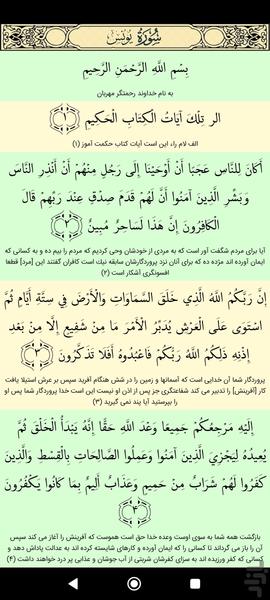 سُورَةُ يُونُسَ
بِسْمِ اللَّهِ الرَّحْمَنِ الرَّحِيمِ
به نام خداوند رحمتگر مهربان
الر تِلْكَ آيَاتُ الْكِتَابِ الْحَكِيمِ ﴿١﴾
الف لام راء این است آیات کتاب حکمت آموز (۱)
أَكَانَ لِلنَّاسِ عَجَبًا أَنْ أَوْحَيْنَا إِلَى رَجُلٍ مِنْهُمْ أَنْ أَنْذِرِ النَّاسَ
وَبَشِّرِ الَّذِينَ آمَنُوا أَنَّ لَهُمْ قَدَمَ صِدْقٍ عِنْدَ رَبِّهِمْ قَالَ
الْكَافِرُونَ إِنَّ هَذَا لَسَاحِرٌ مُبِينٌ ﴿٢﴾
آیا برای مردم شگفت آور است که به مردی از خودشان وحی کردیم که مردم را بیم ده و به کسانی که
ایمان آورده اند مژده ده که برای آنان نزد پروردگارشان سابقه نیک است کافران گفتند این [مرد] قطعا
افسونگری آشکار است (۲)
إِنَّ رَبَّكُمُ اللَّهُ الَّذِي خَلَقَ السَّمَاوَاتِ وَالْأَرْضَ فِي سِتَّةِ أَيَّامٍ ثُمَّ
اسْتَوَى عَلَى الْعَرْشِ يُدَبِّرُ الْأَمْرَ مَا مِنْ شَفِيعٍ إِلَّا مِنْ بَعْدِ
إِذْنِهِ ذَلِكُمُ اللَّهُ رَبُّكُمْ فَاعْبُدُوهُ أَفَلَا تَذَكَّرُونَ ﴿٣﴾
پروردگار شما آن خدایی است که آسمانها و زمین را در شش هنگام آفرید سپس بر عرش استیلا یافت
کار [آفرینش] را تدبیر می کند شفاعتگری جز پس از اذن او نیست این است خدا پروردگار شما پس او
را بپرستید آیا پند نمی گیرید (۳)
إِلَيْهِ مَرْجِعُكُمْ جَمِيعًا وَعْدَ اللَّهِ حَقًّا إِنَّهُ يَبْدَأُ الْخَلْقَ ثُمَّ
يُعِيدُهُ لِيَجْزِيَ الَّذِينَ آمَنُوا وَعَمِلُوا الصَّالِحَاتِ بِالْقِسْطِ وَالَّذِينَ
كَفَرُوا لَهُمْ شَرَابٌ مِنْ حَمِيمٍ وَعَذَابٌ أَلِيمٌ بِمَا كَانُوا يَكْفُرُونَ
﴿٤﴾
بازگشت همه شما به سوی اوست وعده خدا حق است هموست که آفرینش را آغاز می کند سپس
آن را باز می گرداند تا کسانی را که ایمان آورده و کارهای شایسته کرده اند به عدالت پاداش دهد و
کسانی که کفر ورزیده اند به سزای کفرشان شربتی از آب جوشان و عذابی پر درد خواهند داشت (۴)
بازار